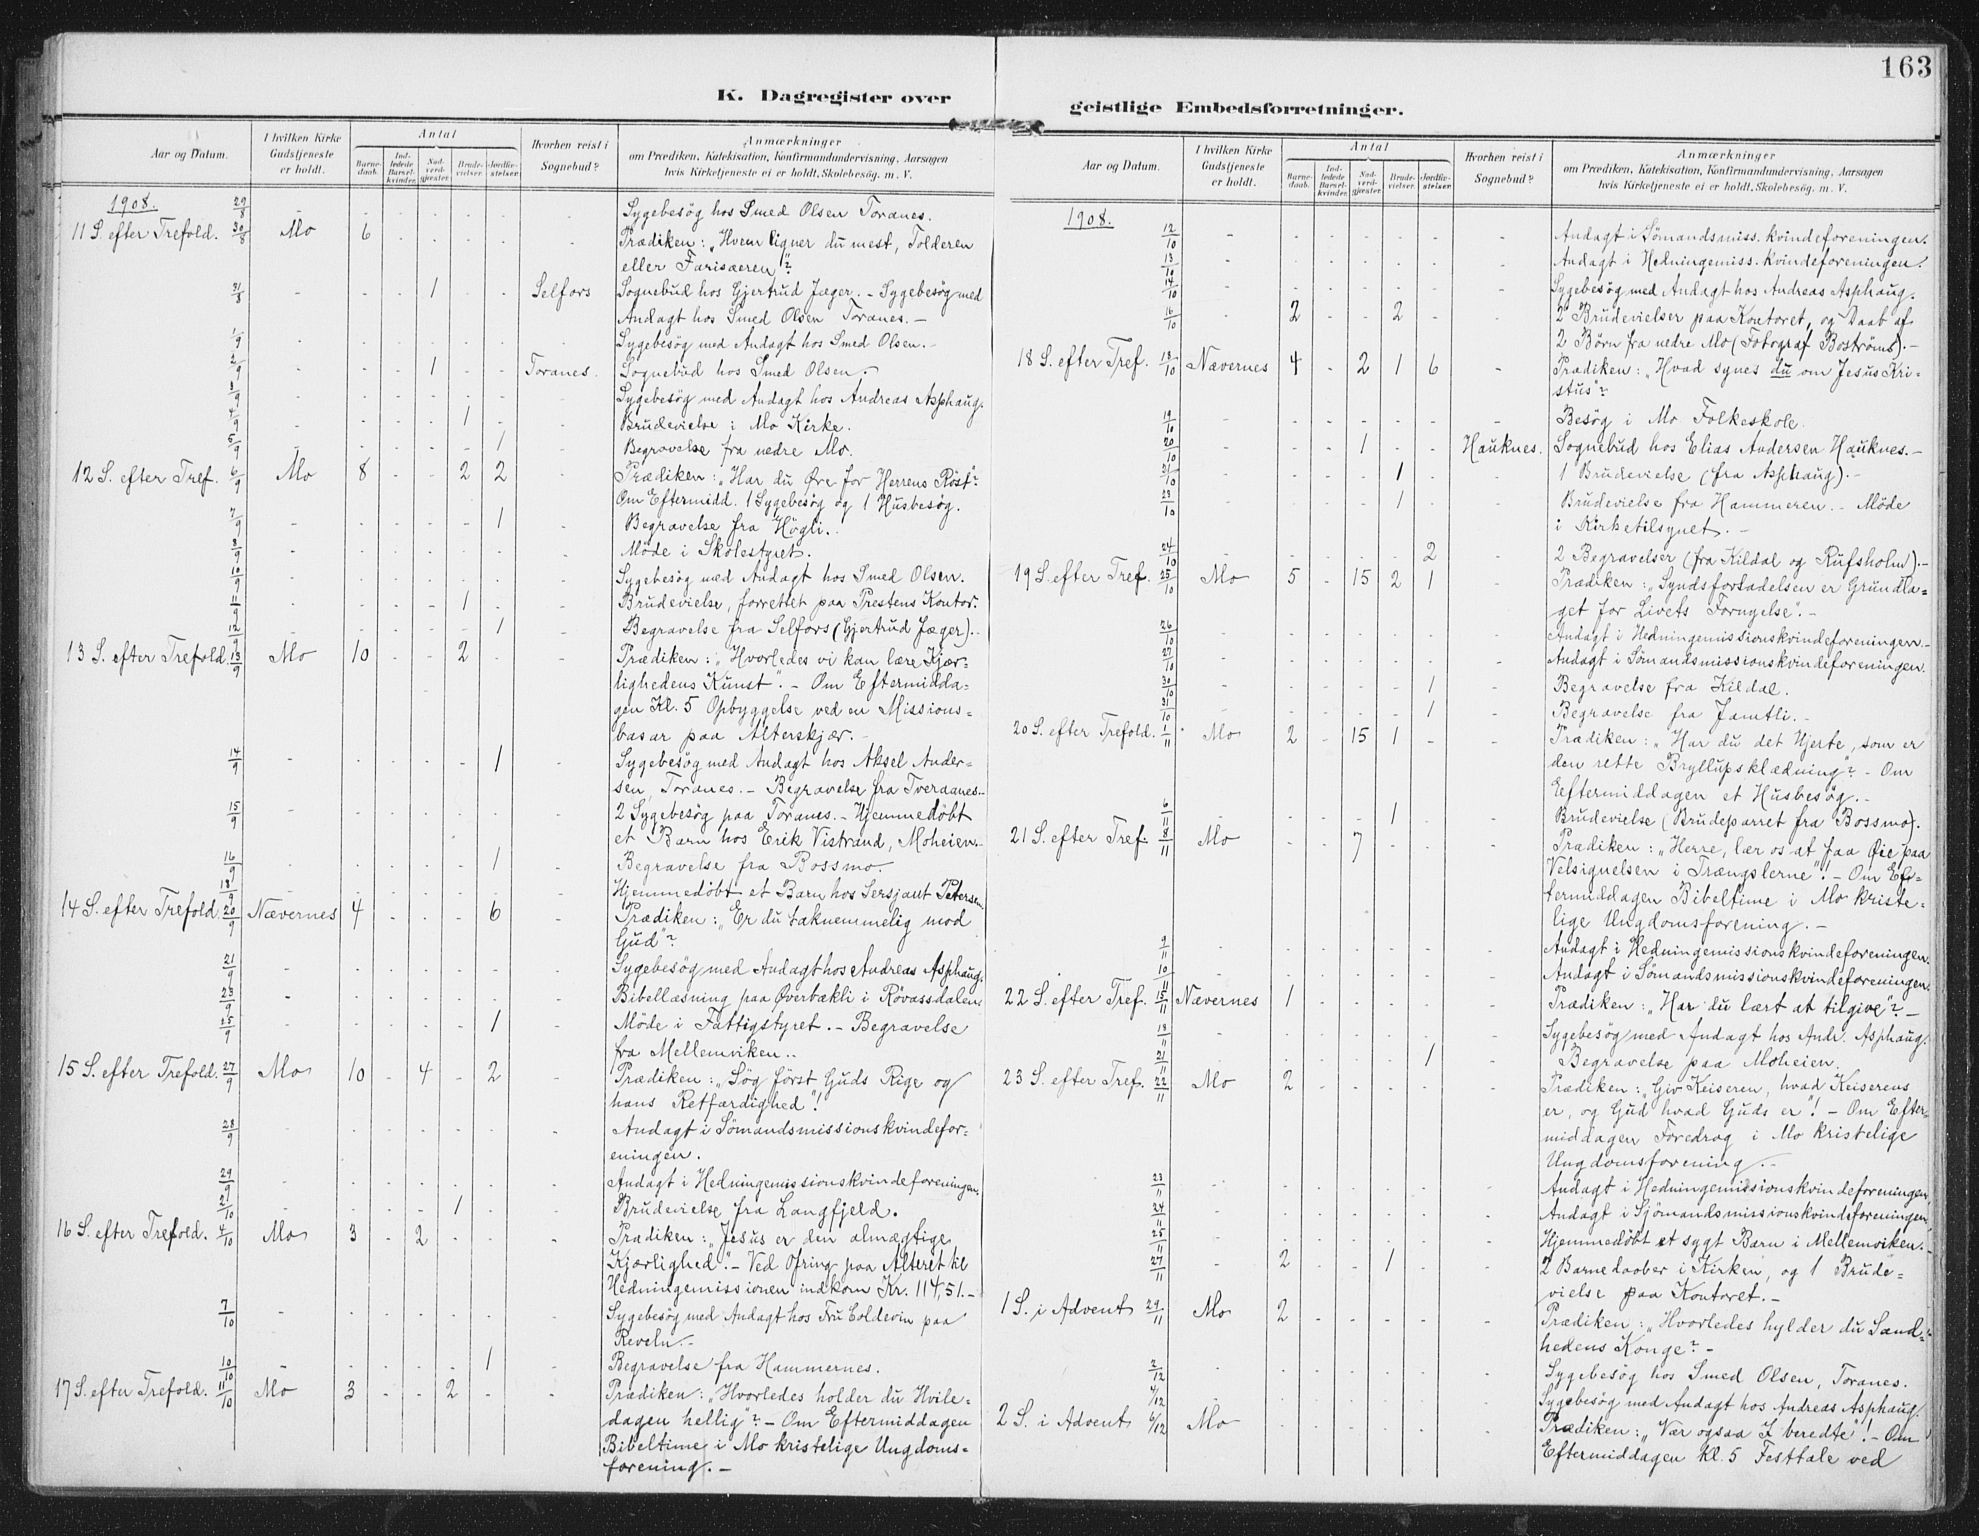 163
K. Dagregister over geistlige Embedsforretninger.
Aar og Datum.
I hvilken Kirke Gudstjeneste er holdt.
Antal
Barnedaab.
Indledede Barselkvinder.
Nadverdgjester.
Brudevielser.
Jordfæstelser.
Hvorhen reist i Sognebud?
Anmærkninger
om Prædiken, Katekisation, Konfirmandundervisning, Aarsagen
hvis Kirketjeneste ei er holdt, Skolebesøg. m. V.
1908. 29/8 - - - - - - - Sygebesøg hos Smed Olsen Toranes.
11 S. efter Trefold. 30/8 Mo 6 - - - - - Prædiken: „Hvem ligner du mest, Tolderen
eller Farisæeren"?
31/8 - - - 1 - - Selfors Sognebud hos Gjertrud Jæger. - Sygebesøg med
Andagt hos Smed Olsen Toranes. -
1/9 - - - - - - - Sygebesøg med Andagt hos Smed Olsen. -
2/9 - - - 1 - - Toranes. Sognebud hos Smed Olsen.
3/9 - - - - - - - Sygebesøg med Andagt hos Andreas Asphaug.
4/9 - - - - 1 - - Brudevielse i Mo Kirke.
5/9 - - - - - 1 - Begravelse fra nedre Mo.
12 S. efter Tref. 6/9 Mo 8 - - 2 2 - Prædiken: „Har du Øre for Herrens Røst"?
Om Eftermidd. 1 Sygebesøg og 1 Husbesøg.
7/9 - - - - - 1 - Begravelse fra Høgli.
8/9 - - - - - - - Møde i Skolestyret.
10/9 - - - - - - - Sygebesøg med Andagt hos Smed Olsen.
11/9 - - - - 1 - - Brudevielse, forrettet paa Prestens Kontor.
12/9 - - - - - 1 - Begravelse fra Selfors (Gjertrud Jæger). -
13 S. efter Trefold. 13/9 Mo 10 - - 2 - - Prædiken: „Hvorledes vi kan lære Kjær-
lighedens Kunst". - Om Eftermidda-
gen Kl. 5 Opbyggelse ved en Missions-
basar paa Alterskjær. -
14/9 - - - - - 1 - Sygebesøg med Andagt hos Aksel Ander-
sen, Toranes. - Begravelse fra Tveraanes. -
15/9 - - - - - - - 2 Sygebesøg paa Toranes. - Hjemmedøbt
et Barn hos Erik Vistrand, Moheien. -
16/9 - - - - - 1 - Begravelse fra Bossmo.
18/9 - - - - - - - Hjemmedøbt et Barn hos Sersjant Petersen.
14 S. efter Trefold. 20/9 Nævernes 4 - - - 6 - Prædiken: „Er du taknemmelig mod
Gud"?
21/9 - - - - - - - Sygebesøg med Andagt hos Andreas Asphaug.
23/9 - - - - - - - Bibellæsning paa Øverbækli i Røvassdalen.
25/9 - - - - - 1 - Møde i Fattigstyret. - Begravelse
fra Mellemviken. -
15 S. efter Trefold. 27/9 Mo 10 - 4 - 2 - Prædiken: „Søg først Guds Rige og
hans Retfærdighed"!
28/9 - - - - - - - Andagt i Sømandsmissionskvindefor-
eningen.
29/9 - - - - - - - Andagt i Hedningemissionskvindeforeningen.
2/10 - - - - 1 - - Brudevielse fra Langfjeld.
16 S. efter Trefold. 4/10 Mo 3 - 2 - - - Prædiken: „Jesus er den almægtige
Kjærlighed". - Ved Ofring paa Alteret til
Hedningemissionen indkom Kr. 114,51. -
7/10 - - - - - - - Sygebesøg med Andagt hos Fru Coldevin paa
Reveln. -
10/10 - - - - - 1 - Begravelse fra Hammernes.
17 S. efter Trefold. 11/10 Mo 3 - - 2 - - Prædiken: „Hvorledes holder du Hvile-
dagen hellig"? - Om Eftermiddagen
Bibeltime i Mo kristelige Ungdoms-
forening. -
Aar og Datum.
I hvilken Kirke Gudstjeneste er holdt.
Antal
Barnedaab.
Indledede Barselkvinder.
Nadverdgjester.
Brudevielser.
Jordfæstelser.
Hvorhen reist i Sognebud?
Anmærkninger
om Prædiken, Katekisation, Konfirmandundervisning, Aarsagen
hvis Kirketjeneste ei er holdt, Skolebesøg. m. V.
1908. 12/10 - - - - - - - Andagt i Sømandsmiss. kvindeforeningen.
13/10 - - - - - - - Andagt i Hedningemiss. kvindeforeningen.
14/10 - - - - - - - Sygebesøg med Andagt hos Andreas Asphaug.
16/10 - 2 - - 2 - - 2 Brudevielser paa Kontoret, og Daab af
2 Børn fra nedre Mo (Fotograf Bostrøms). -
18 S. efter Tref. 18/10 Nævernes 4 - 2 1 6 - Prædiken: „Hvad synes du om Jesus Kri-
stus"?
19/10 - - - - - - - Besøg i Mo Folkeskole.
20/10 - - - 1 - - Hauknes. Sognebud hos Elias Andersen Hauknes. -
21/10 - - - - 1 - - 1 Brudevielse (fra Asphaug). -
23/10 - - - - 1 - - Brudevielse fra Hammeren. - Møde
i Kirketilsynet. -
24/10 - - - - - 2 - 2 Begravelser (fra Kildal og Rufsholm). -
19 S. efter Tref. 25/10 Mo 5 - 15 2 1 - Prædiken: „Syndsforladelsen er Grundla-
get for Livets Fornyelse". -
26/10 - - - - - - - Andagt i Hedningemissionskvindeforeningen. -
27/10 - - - - - - - Andagt i Sømandsmissionskvindeforeningen.
30/10 - - - - - 1 - Begravelse fra Kildal.
31/10 - - - - - 1 - Begravelse fra Jamtli. -
20 S. efter Trefold. 1/11 Mo 2 - 15 1 - - Prædiken: „Har du det Hjerte, som er
den rette Bryllupsklædning"? - Om
Eftermiddagen et Husbesøg. -
6/11 - - - - 1 - - Brudevielse (Brudeparret fra Bossmo).
21 S. efter Tref. 8/11 Mo - - 7 - - - Prædiken: „Herre, lær os at faa Øie paa
Velsignelsen i Trængslerne"! - Om Ef-
termiddagen Bibeltime i Mo kriste-
lige Ungdomsforening. -
9/11 - - - - - - - Andagt i Hedningemissionskvindeforeningen.
10/11 - - - - - - - Andagt i Sømandsmissionskvindeforeningen.
22 S. efter Tref. 15/11 Nævernes 1 - - - - - Prædiken: „Har du lært at tilgive"? -
18/11 - - - - - - - Sygebesøg med Andagt hos Andr. Asphaug.
21/11 - - - - - 1 - Begravelse paa Moheien.
23 S. efter Tref. 22/11 Mo 2 - - - - - Prædiken: „Giv Keiseren, hvad Keiserens
er, og Gud hvad Guds er"! - Om Efter-
middagen Foredrag i Mo kristelige
Ungdomsforening. -
23/11 - - - - - - - Andagt i Hedningemissionskvindeforeningen.
24/11 - - - - - - - Andagt i Sjømandsmissionskvindeforeningen.
25/11 - - - - - - - Hjemmedøbt et sygt Barn i Mellemviken. -
27/11 - 2 - - 1 - - 2 Barnedaaber i Kirken, og 1 Brude-
vielse paa Kontoret. -
1 S. i Advent 29/11 Mo 2 - - - - - Prædiken: „Hvorledes hylder du Sand-
hedens Konge"? -
2/12 - - - - - - - Sygebesøg hos Smed Olsen, Toranes.
4/12 - - - - - - - Sygebesøg med Andagt hos Andreas Asphaug.
2 S. i Advent 6/12 Mo - - - - - - Prædiken: „Vær ogsaa I beredte"! - Om
Eftermiddagen Kl. 5 Festtale ved